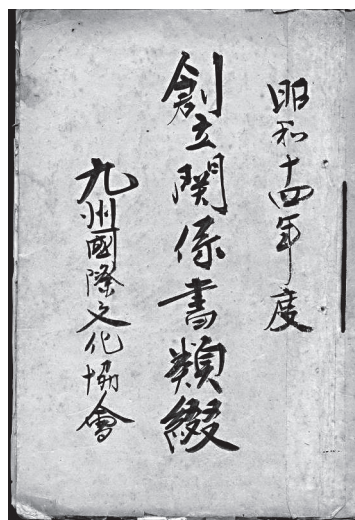 昭和十四年度
創立関係書類綴
九州國際文化協會